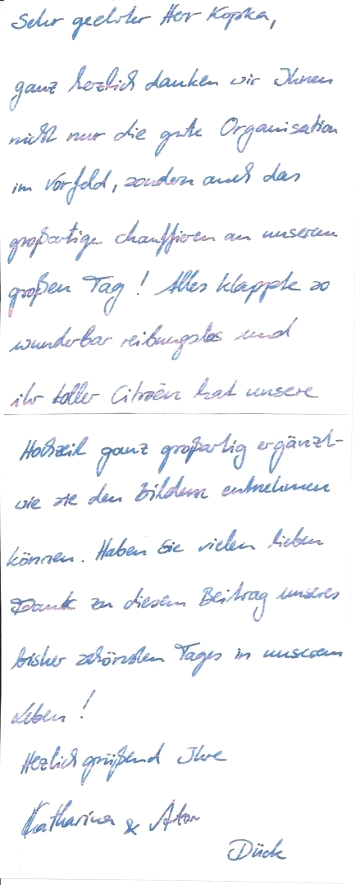 Sehr geehrter Herr Kopka,
ganz herzlich danken wir Ihnen
nicht nur die gute Organisation
im Vorfeld, sondern auch das
großartige chauffieren an unserem
großen Tag! Alles klappte so
wunderbar reibungslos und
ihr toller Citroën hat unsere
Hochzeit ganz großartig ergänzt-
wie sie den Bildern entnehmen
können. Haben Sie vielen lieben
Dank zu diesem Beitrag unseres
bisher schönsten Tages in unserem
Leben!
Herzlich grüßend Ihre
Katharina &
Dück